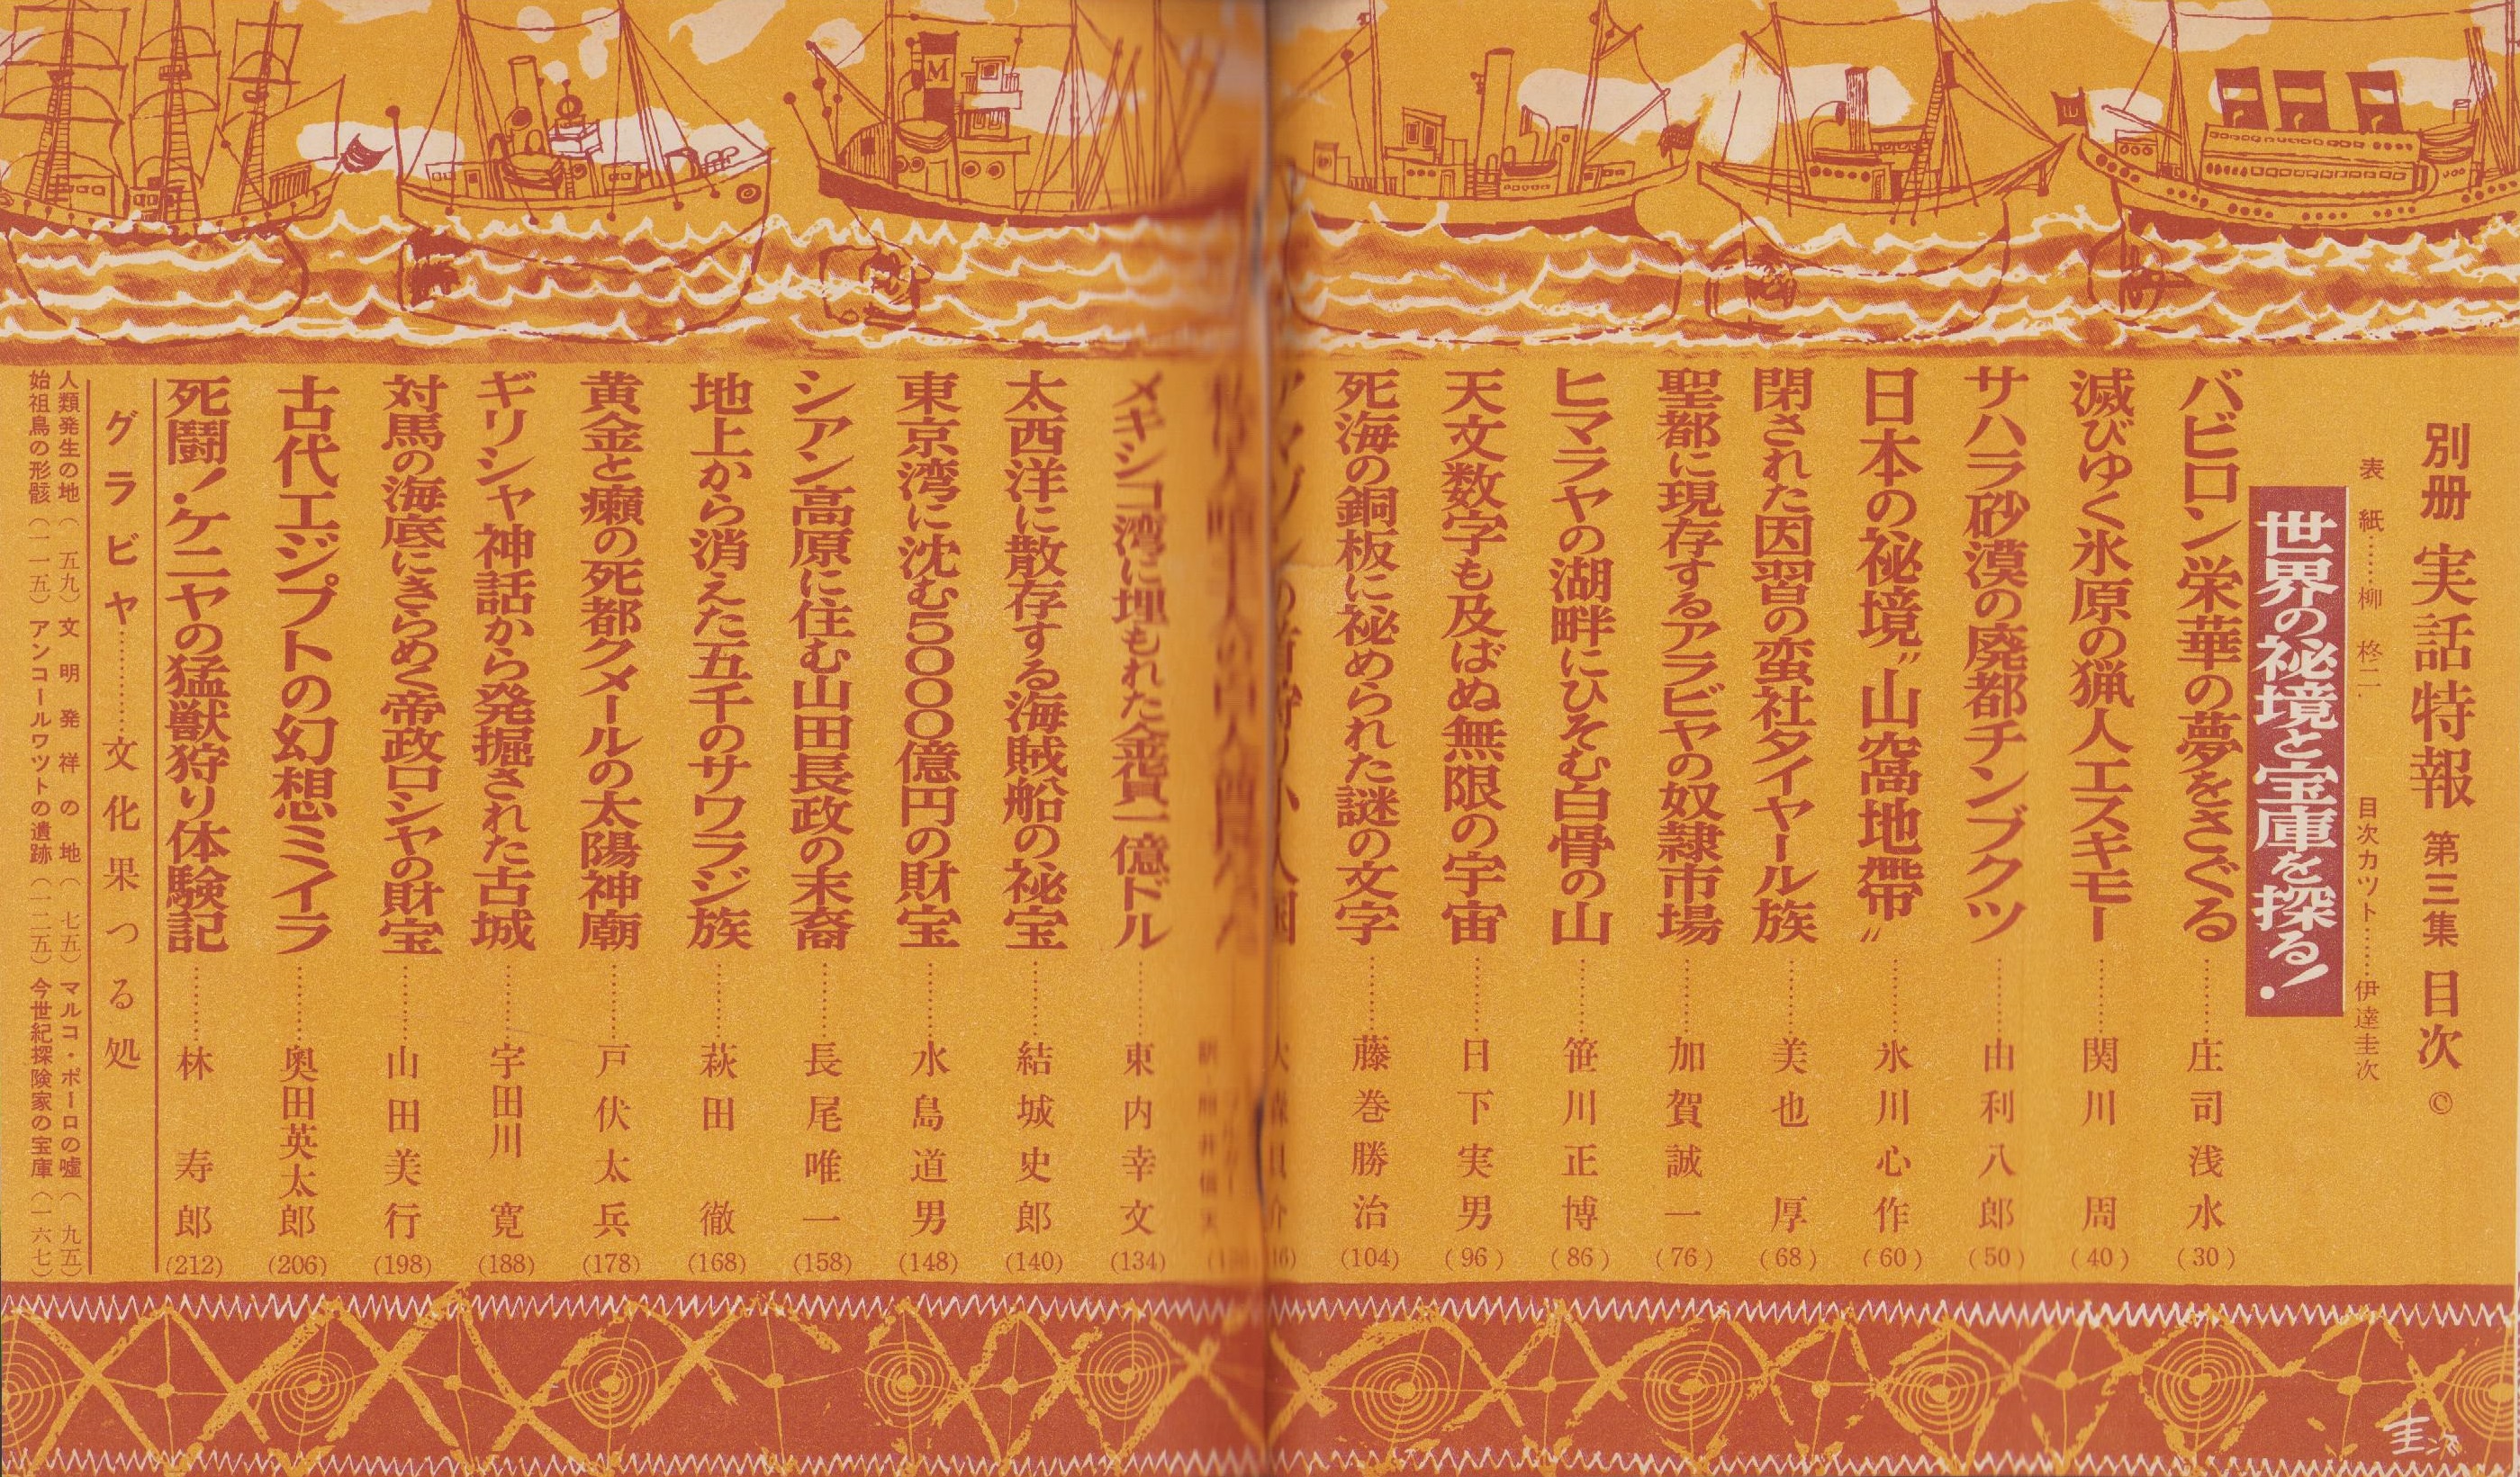 別册 実話特報 第三集 目次 ©
表紙……柳柊二 目次カツト……伊達圭次
世界の祕境と宝庫を探る!
バビロン栄華の夢をさぐる……庄司浅水(30)
滅びゆく氷原の猟人エスキモー……関川周(40)
サハラ砂漠の廃都チンブクツ……由利八郎(50)
日本の祕境〝山窩地帶〟……氷川心作(60)
閉された因習の蛮社タイヤール族……美也厚(68)
聖都に現存するアラビヤの奴隷市場……加賀誠一(76)
ヒマラヤの湖畔にひそむ白骨の山……笹川正博(86)
天文数字も及ばぬ無限の宇宙……日下実男(96)
死海の銅板に祕められた謎の文字……藤巻勝治(104)
メキシコ湾に埋もれた金貨一億ドル……東内幸文(134)
太西洋に散存する海賊船の祕宝……結城史郎(140)
東京湾に沈む5000億円の財宝……水島道男(148)
シアン高原に住む山田長政の末裔……長尾唯一(158)
地上から消えた五千のサワラジ族……萩田徹(168)
黄金と癩の死都クメールの太陽神廟……戸伏太兵(178)
ギリシヤ神話から発掘された古城……宇田川寛(188)
対馬の海底にきらめく帝政ロシヤの財宝……山田美行(198)
古代エジプトの幻想ミイラ……奥田英太郎(206)
死闘!ケニヤの猛獣狩り体験記……林寿郎(212)
グラビヤ…………文化果つる処
人類発生の地(五九) 文明発祥の地(七五) マルコ・ポーロの嘘(九五)
始祖鳥の形骸(一一五) アンコールワツトの遺跡(一二五) 今世紀探険家の宝庫(一六七)
M
圭次